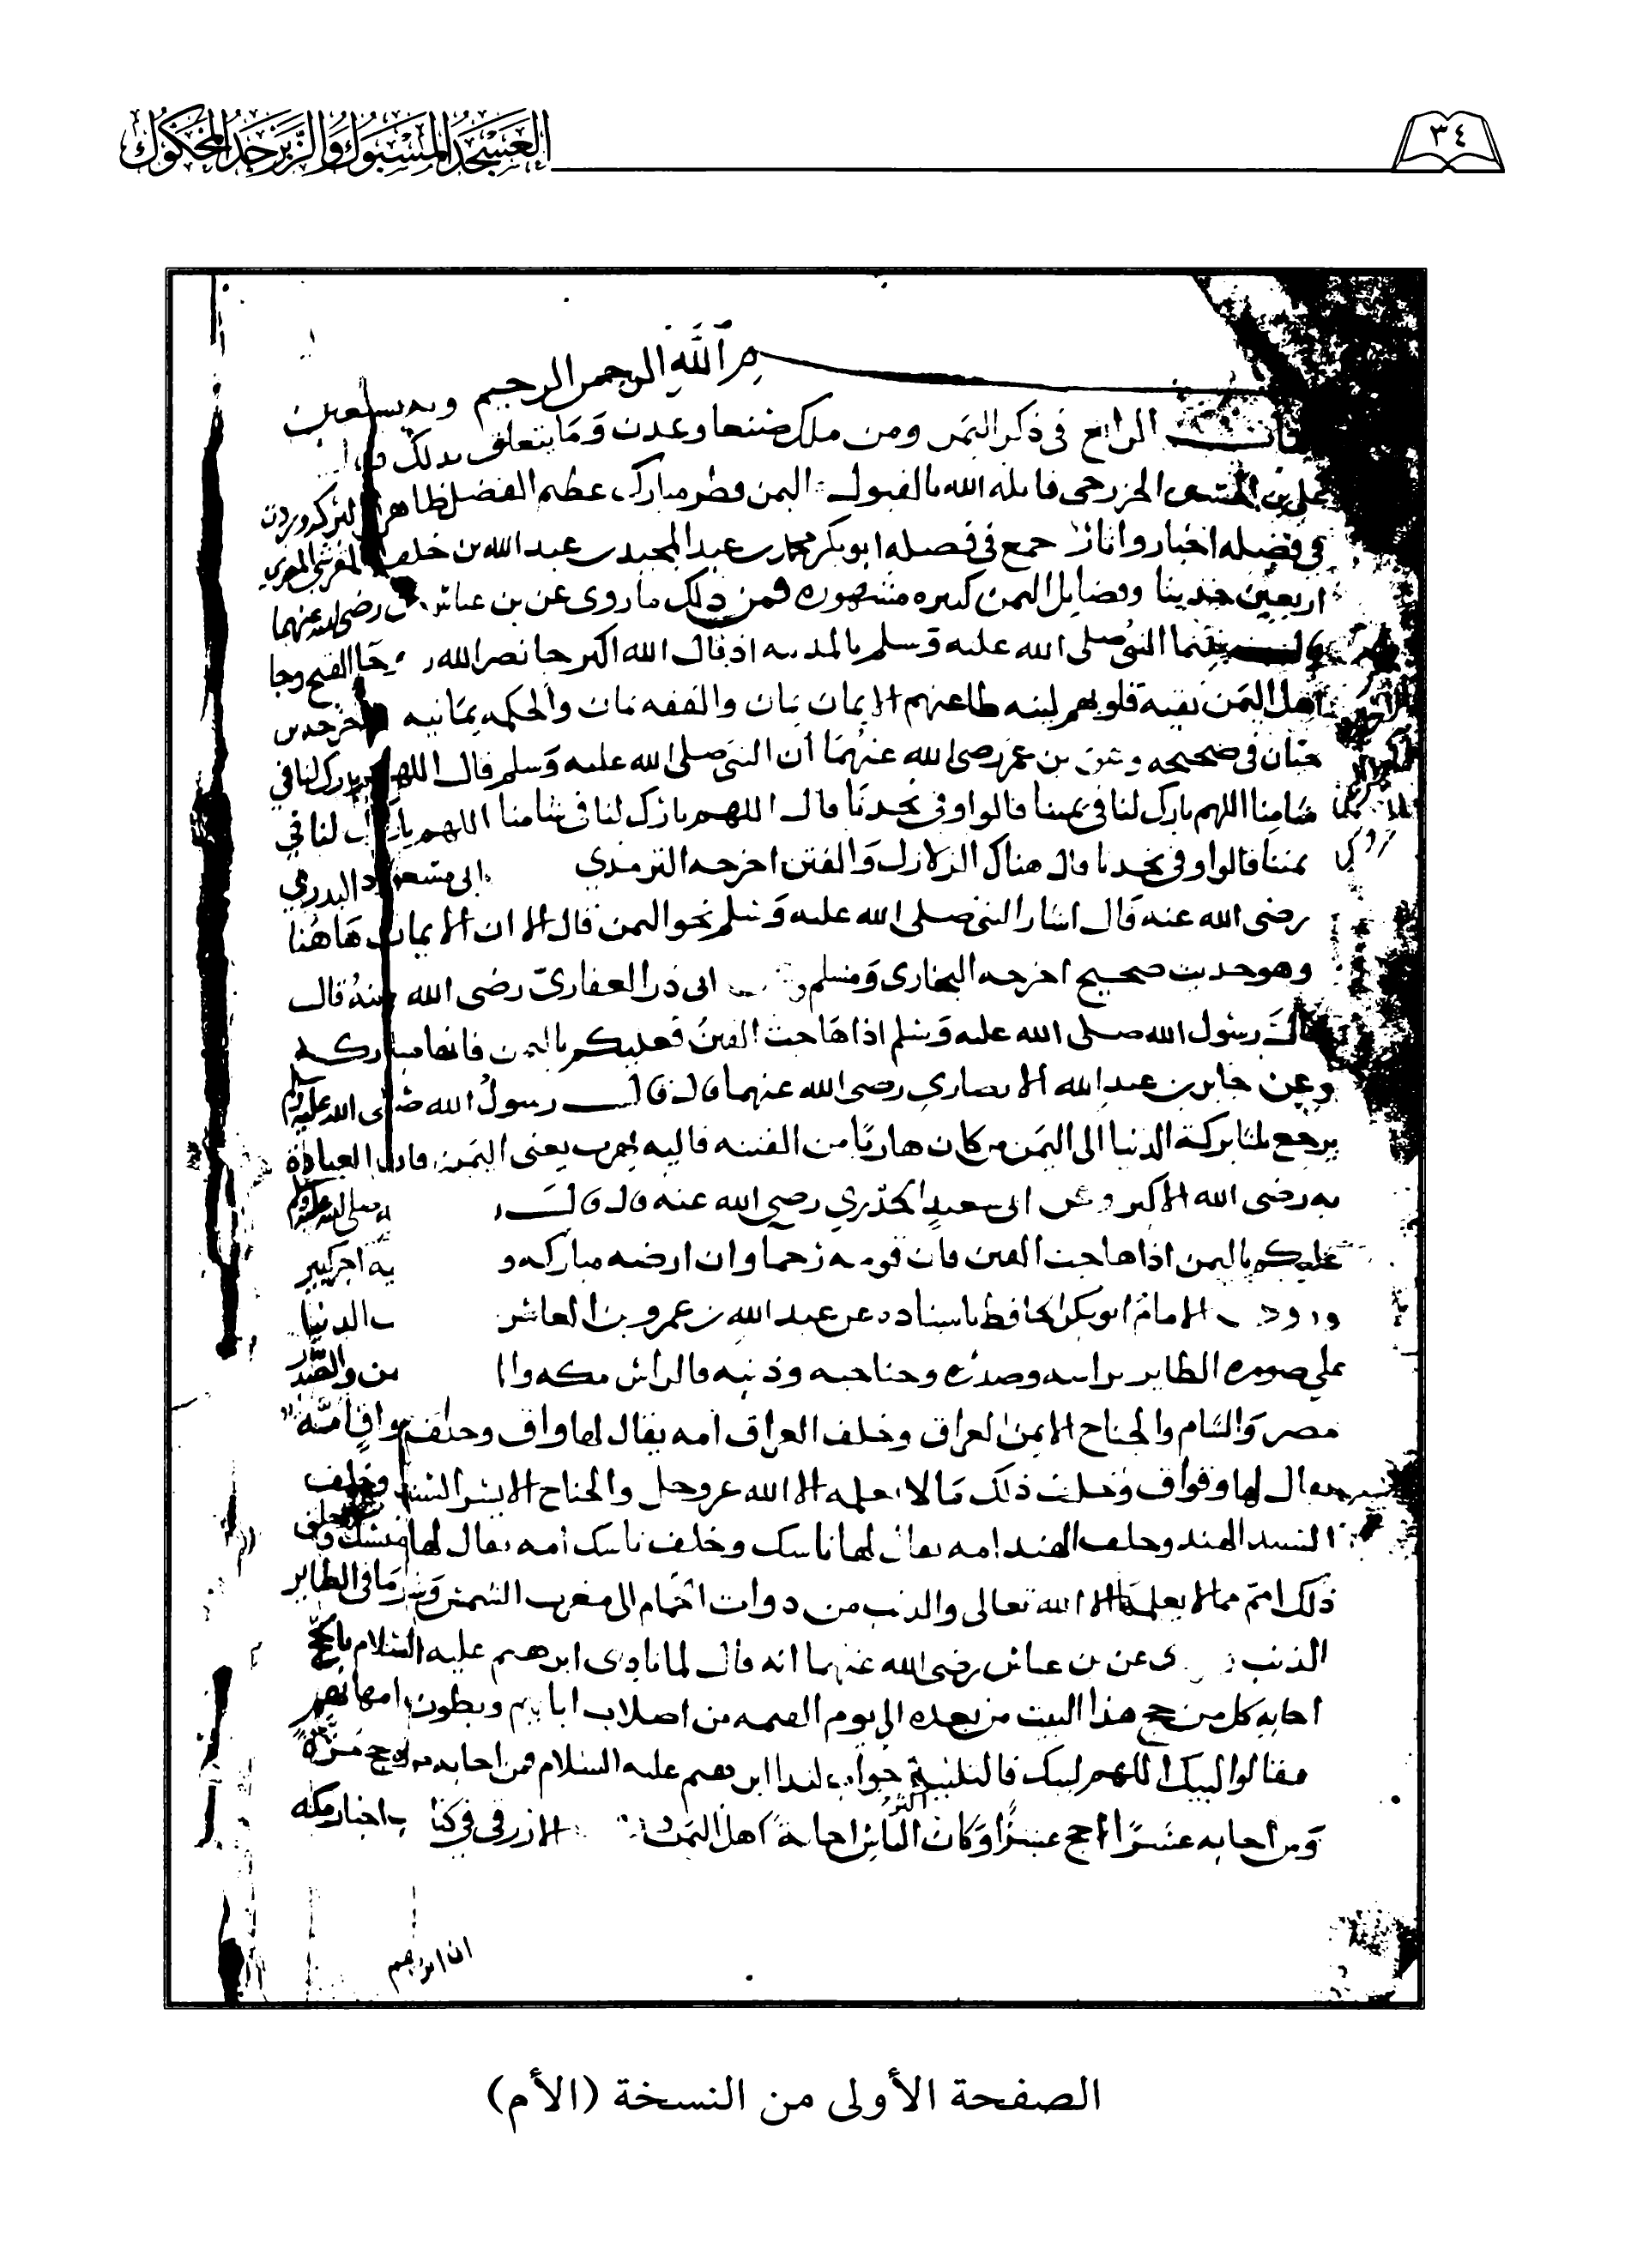 ٣٤
العسجد المسبوك والزبرجد المحكوك
بسم الله الرحمن الرحيم وبه نستعين
الرابع في ذكر اليمن ومن ملك صنعا وعدن وما يتعلق بذلك
علي بن الحسن الخزرجي قابله الله بالقبول اليمن قطر مبارك عظيم الفضل ظاهر البركه وردت
في فضله اخبار واثار جمع في فضله ابو بكر محمد بن عبد المجيد بن عبد الله بن خلف القرشي المصري
اربعين حديثا وفضايل اليمن كثيره مشهوره فمن ذلك ما روى عن بن عباس رضى الله عنهما
بينما النبي صلى الله عليه وسلم بالمدينه اذ قال الله اكبر جا نصر الله وجا الفتح وجا
اهل اليمن نقية قلوبهم لينه طاعتهم الايمان يمان والفقه يمان والحكمه يمانيه اخرجه بن
حبان في صحيحه وعن بن عمر رضى الله عنهما أن النبي صلى الله عليه وسلم قال اللهم بارك لنا في
شامنا اللهم بارك لنا في يمننا قالوا وفي نجدنا قال اللهم بارك لنا في شامنا اللهم بارك لنا في
يمننا قالوا وفي نجدنا قال هناك الزلازل والفتن اخرجه الترمذي ابي مسعود البدري
رضى الله عنه قال اشار النبي صلى الله عليه وسلم نحو اليمن فقال الا ان الايمان هاهنا
وهو حديث صحيح اخرجه البخاري ومسلم ابي ذر الغفاري رضى الله عنه قال
قال رسول الله صلى الله عليه وسلم اذا هاجت الفتن فعليكم باليمن فانها مباركه
وعن جابر بن عبد الله الانصاري رضى الله عنهما قال قال رسول الله صلى الله عليه وسلم
يرجع ثلثا بركة الدنيا الى اليمن من كان هاربا من الفتنه فاليه يهرب يعني اليمن فان العبادة
به رضى الله الاكبر وعن ابي سعيد الخدري رضى الله عنه قال قال صلى الله عليه وسلم
عليكم باليمن اذا هاجت الفتن فان قومه رحما وان ارضه مباركه و به اجر كبير
الامام ابو بكر الحافظ باسناده عن عبد الله بن عمرو بن العاص الدنيا
على صوره الطاير براسه وصدره وجناحيه وذنبه فالراس مكه وا من والصدر
مصر والشام والجناح الايمن العراق وخلف العراق امه يقال لها واق وخلف واق امة
يقال لها وقواق وخلف ذلك ما لا يعلمه الا الله عز وجل والجناح الايسر السند وخلف
السند الهند وخلف الهند امه يقال لها ناسك وخلف ناسك امه يقال لها منسك وخلف
ذلك امم مما لا يعلمها الا الله تعالى والذنب من ذوات الحمام الى مغرب الشمس وشر ما في الطاير
الذنب ى عن بن عباس رضى الله عنهما انه قال لما نادى ابرهيم عليه السلام بالحج
اجابه كل من حج هذا البيت من بعده الى يوم القيمه من اصلاب ابايهم وبطون امهاتهم
فقالوا لبيك اللهم لبيك فالتلبية جواب لندا ابرهيم عليه السلام فمن اجابه مره حج مرة
ومن اجابه عشرا حج عشرا وكان اكثر الناس اجابة اهل اليمن الازرقي في كتاب اخبار مكه
ان ابرهيم
الصفحة الأولى من النسخة (الأم)